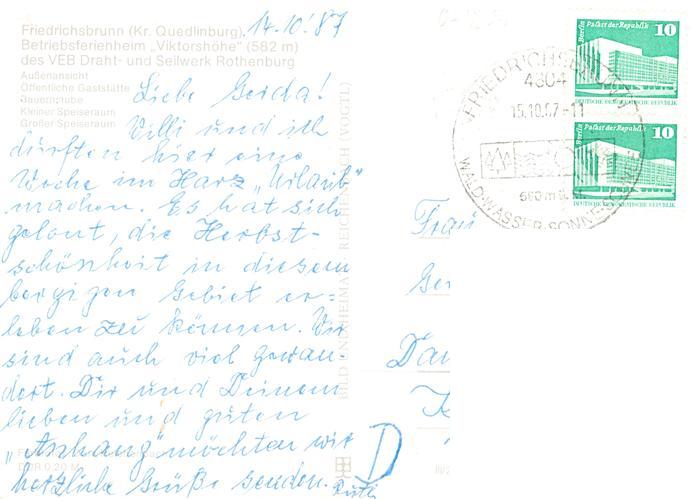 14.10.'87
Friedrichsbrunn (Kr. Quedlinburg),
Betriebsferienheim „Viktorshöhe" (582 m)
des VEB Draht- und Seilwerk Rothenburg
Außenansicht
Öffentliche Gaststätte
Bauernstube
Kleiner Speiseraum
Großer Speiseraum
Liebe Gerda!
Willi und ich
dürften hier eine
Woche im Harz „Urlaub"
machen. Es hat sich
gelont, die Herbst-
schönheit in diesem
bergigen Gebiet er=
leben zu können. Wir
sind auch viel gewan-
dert. Dir und Deinem
lieben und guten
„Anhang" möchten wir
herzliche Grüße senden.
Ruth
DDR 0,20 M
BILD UND HEIMAT REICHENBACH (VOGTL)
D
Frau
FRIEDRICHSBRUNN
4304
15.10.87-11
580 m ü. M.
WALD-WASSER-SONNE
Berlin Palast der Republik 10
DEUTSCHE DEMOKRATISCHE REPUBLIK
Berlin Palast der Republik 10
DEUTSCHE DEMOKRATISCHE REPUBLIK